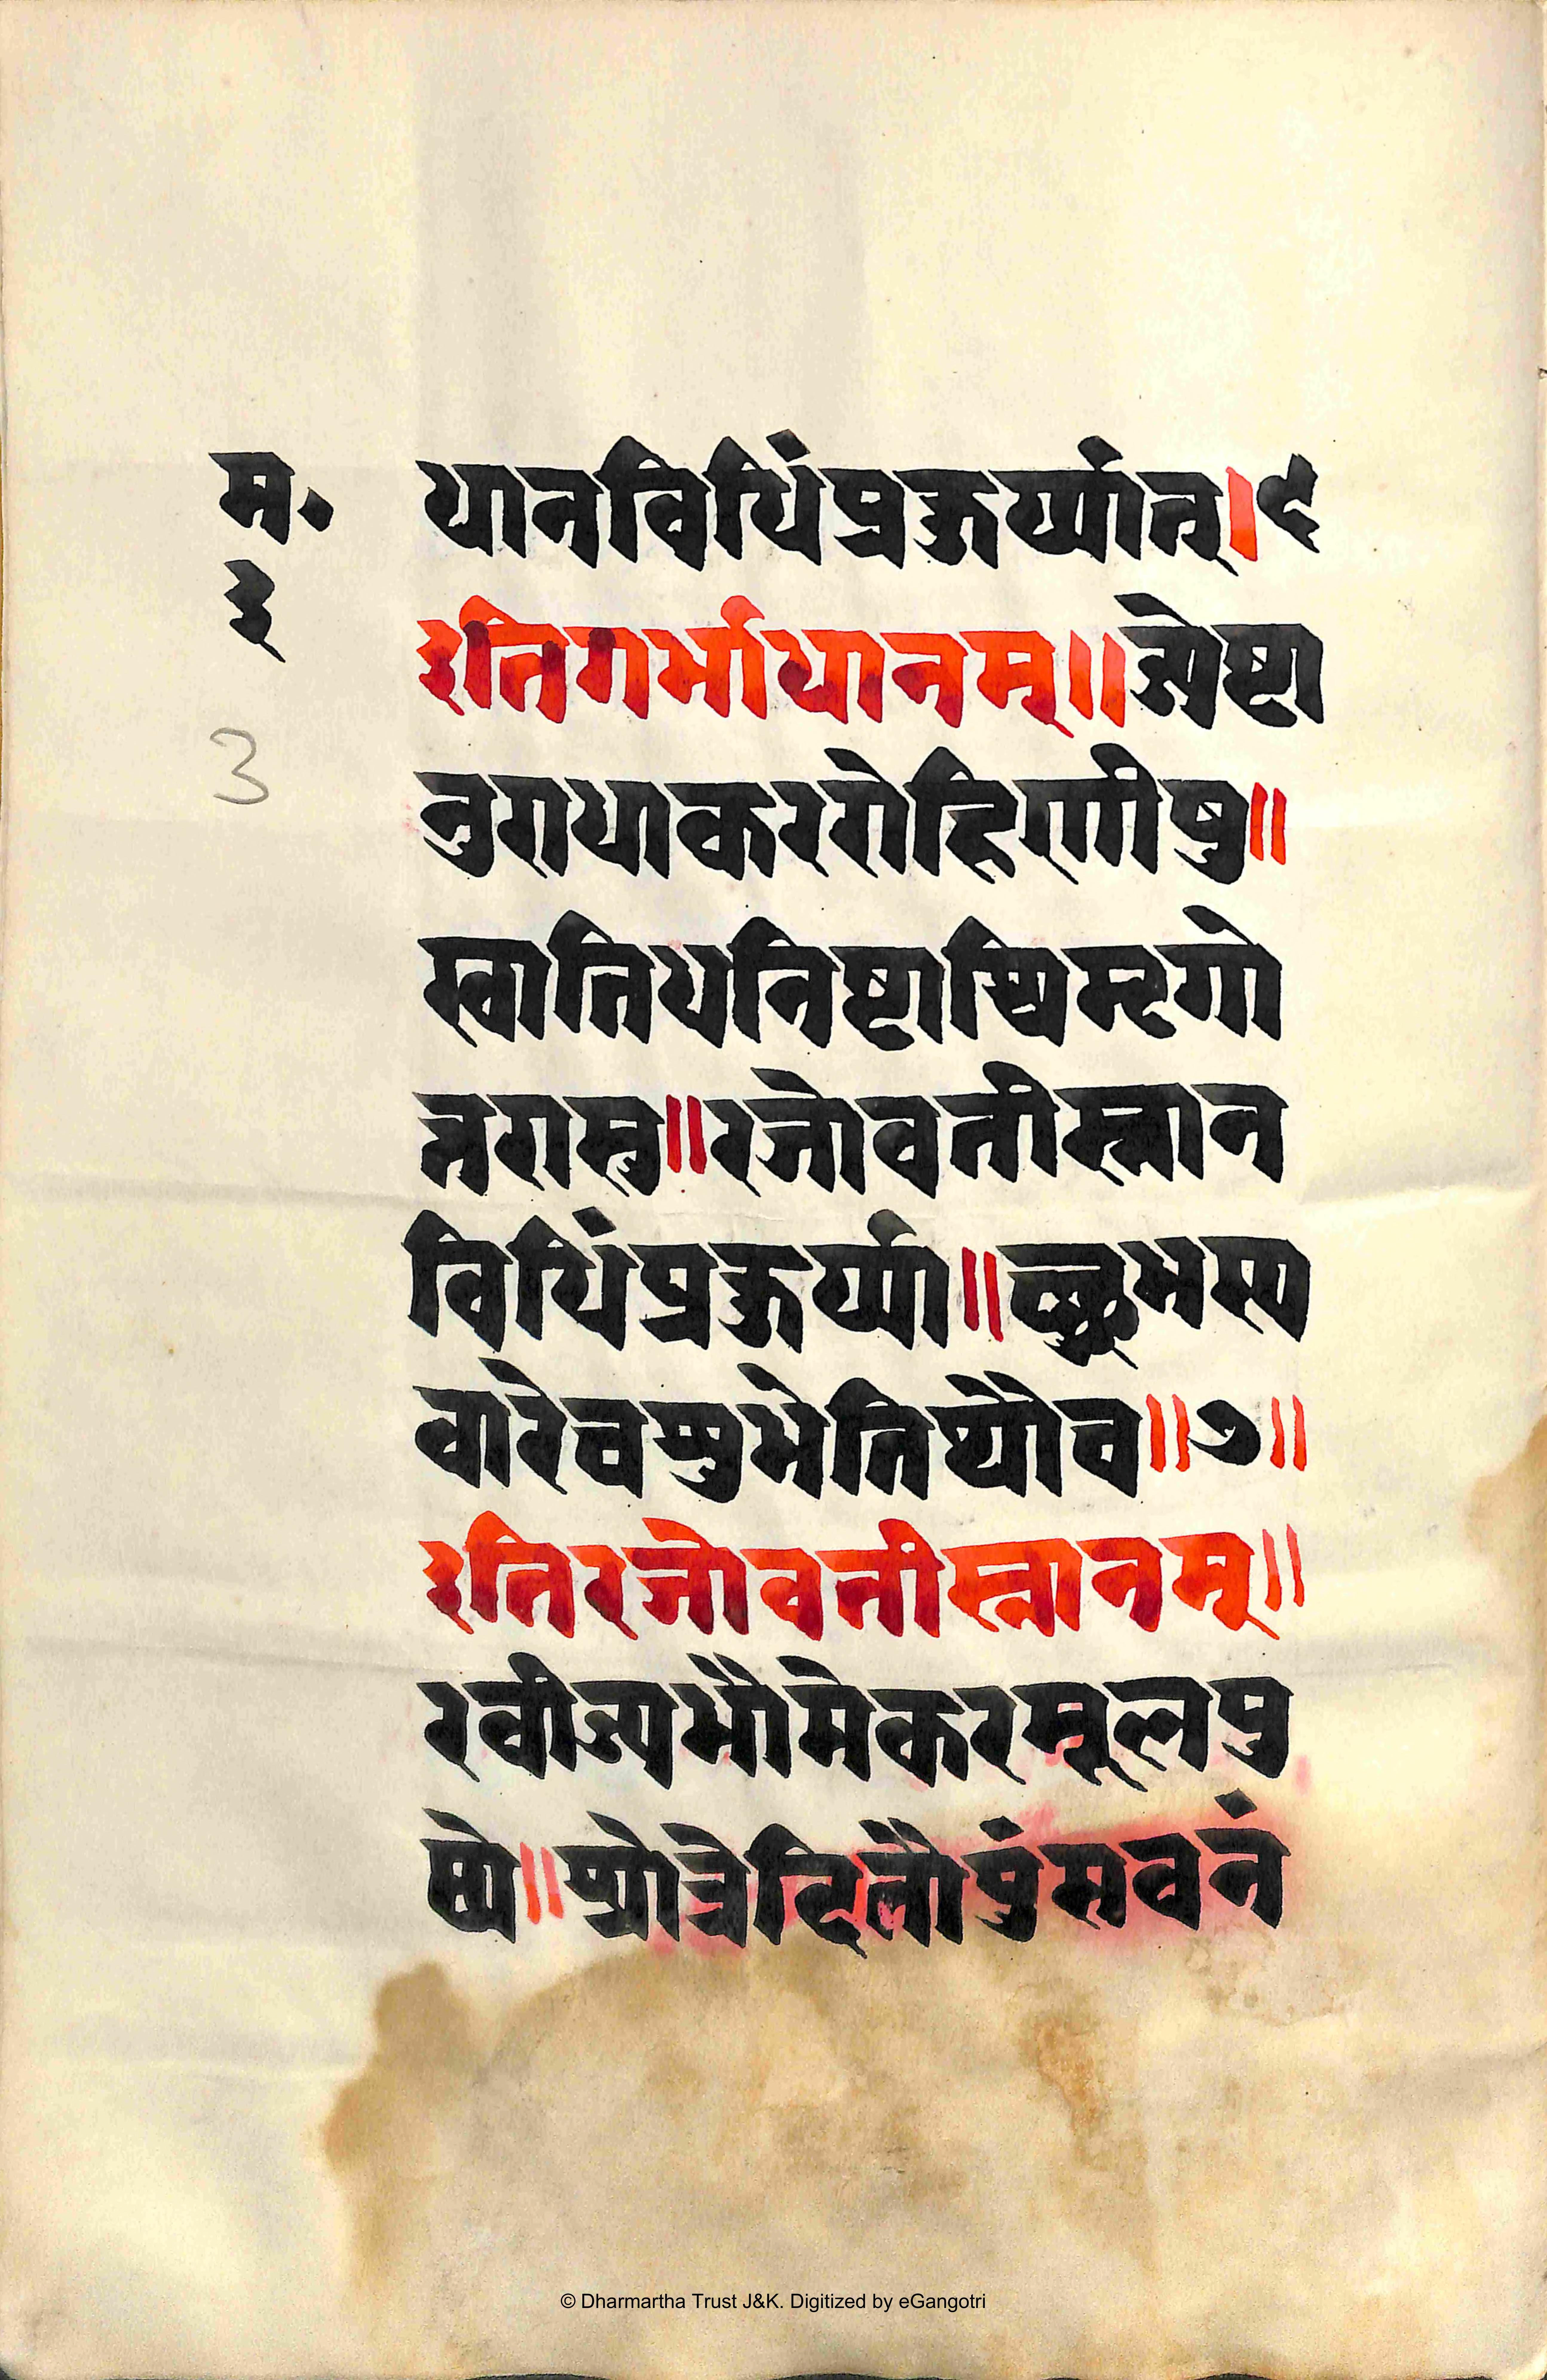 म॰
३
3
धानविधिंप्रकुर्य्यात्।९
इतिगर्भाधानम्॥ज्येष्टा
नुराधाकररोहिणीषु॥
स्वातिधनिष्टाश्विमृगो
त्तरासु॥रजोवतीस्नान
विधिंप्रकुर्य्या॥च्छुभस्य
वारेवशुभेतिथौच॥७॥
इतिरजोवतीस्नानम्॥
रवीज्यभौमेकरमूलपु
ष्ये॥श्रोत्रेदितौपुंसवनं
© Dharmartha Trust J&K. Digitized by eGangotri